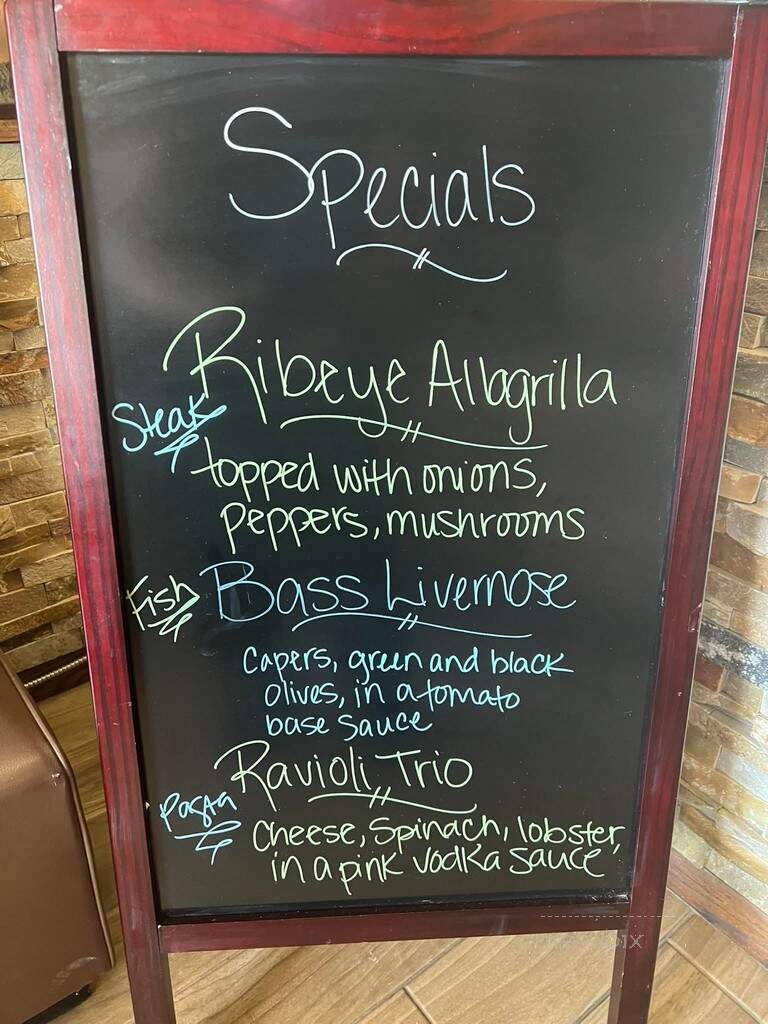 Specials
Ribeye Allagrilla
Steak
topped with onions,
peppers, mushrooms
Fish
Bass Livernose
capers, green and black
olives, in a tomato
base sauce
Ravioli Trio
Pasta
Cheese, Spinach, lobster,
in a pink vodka sauce